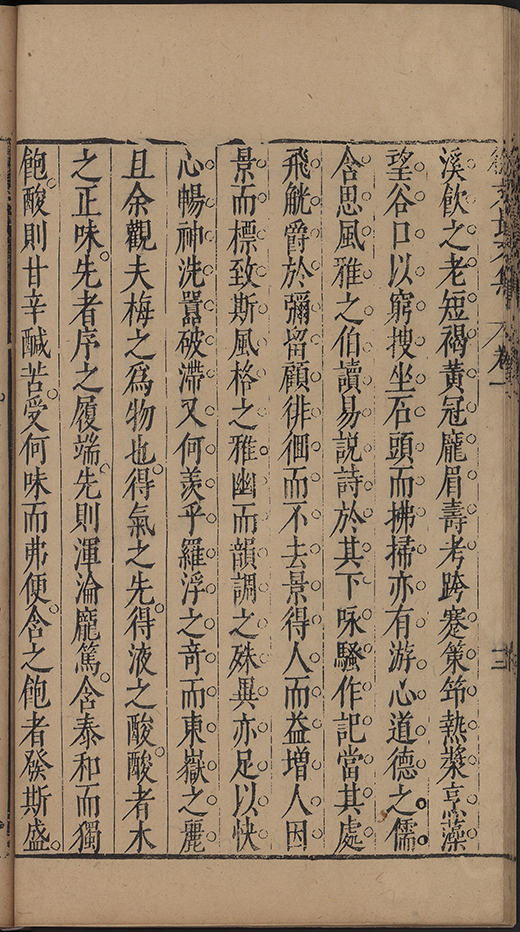 卷一
三
溪飲之老短褐黃冠龐眉壽考跨蹇策筇熱漿烹藻
望谷口以窮搜坐石頭而拂掃亦有游心道德之儒
含思風雅之伯讀易説詩於其下咏騷作記當其處
飛觥爵於彌留顧徘徊而不去景得人而益增人因
景而標致斯風格之雅幽而韻調之殊異亦足以快
心暢神洗囂破滯又何羨乎羅浮之奇而東嶽之麗
且余觀夫梅之爲物也得氣之先得液之酸酸者木
之正味先者序之履端先則渾淪龐篤含泰和而獨
飽酸則甘辛醎苦受何味而弗便含之飽者發斯盛